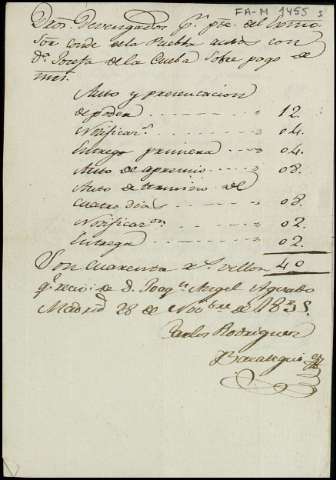 FA-M 1455
Dros Devengados pr pte del Exmo
Sor Conde de la Puebla autos con
Da Josefa de la Cueba sobre pago de
mrs.
Auto y presentacion
de poder 12.
Notificaron 04.
Entrega primera 04.
Auto de apremio 08.
Auto de termino de
cuatro dias 08.
Notificaron 02.
Entrega 02.
Son cuarenta rs vellon 40
qe recivi de D. Joaqn Angel Aguado
Madrid 28 de Novbre de 1835.
Carlos Rodriguez